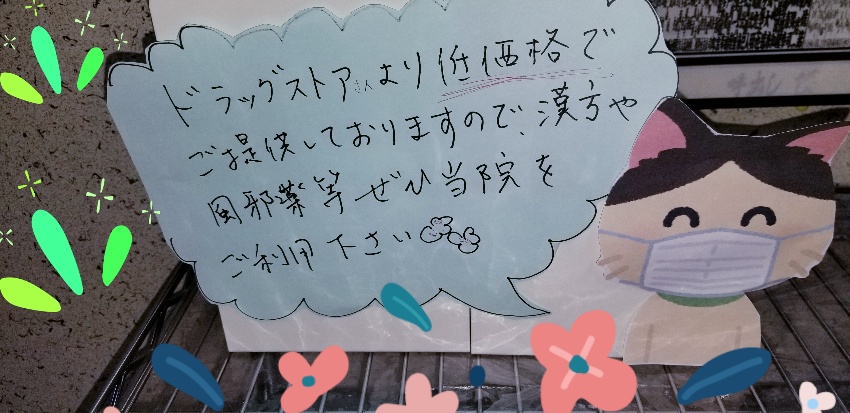 ドラッグストアさんより低価格で
ご提供しておりますので、漢方や
風邪薬等ぜひ当院を
ご利用下さい